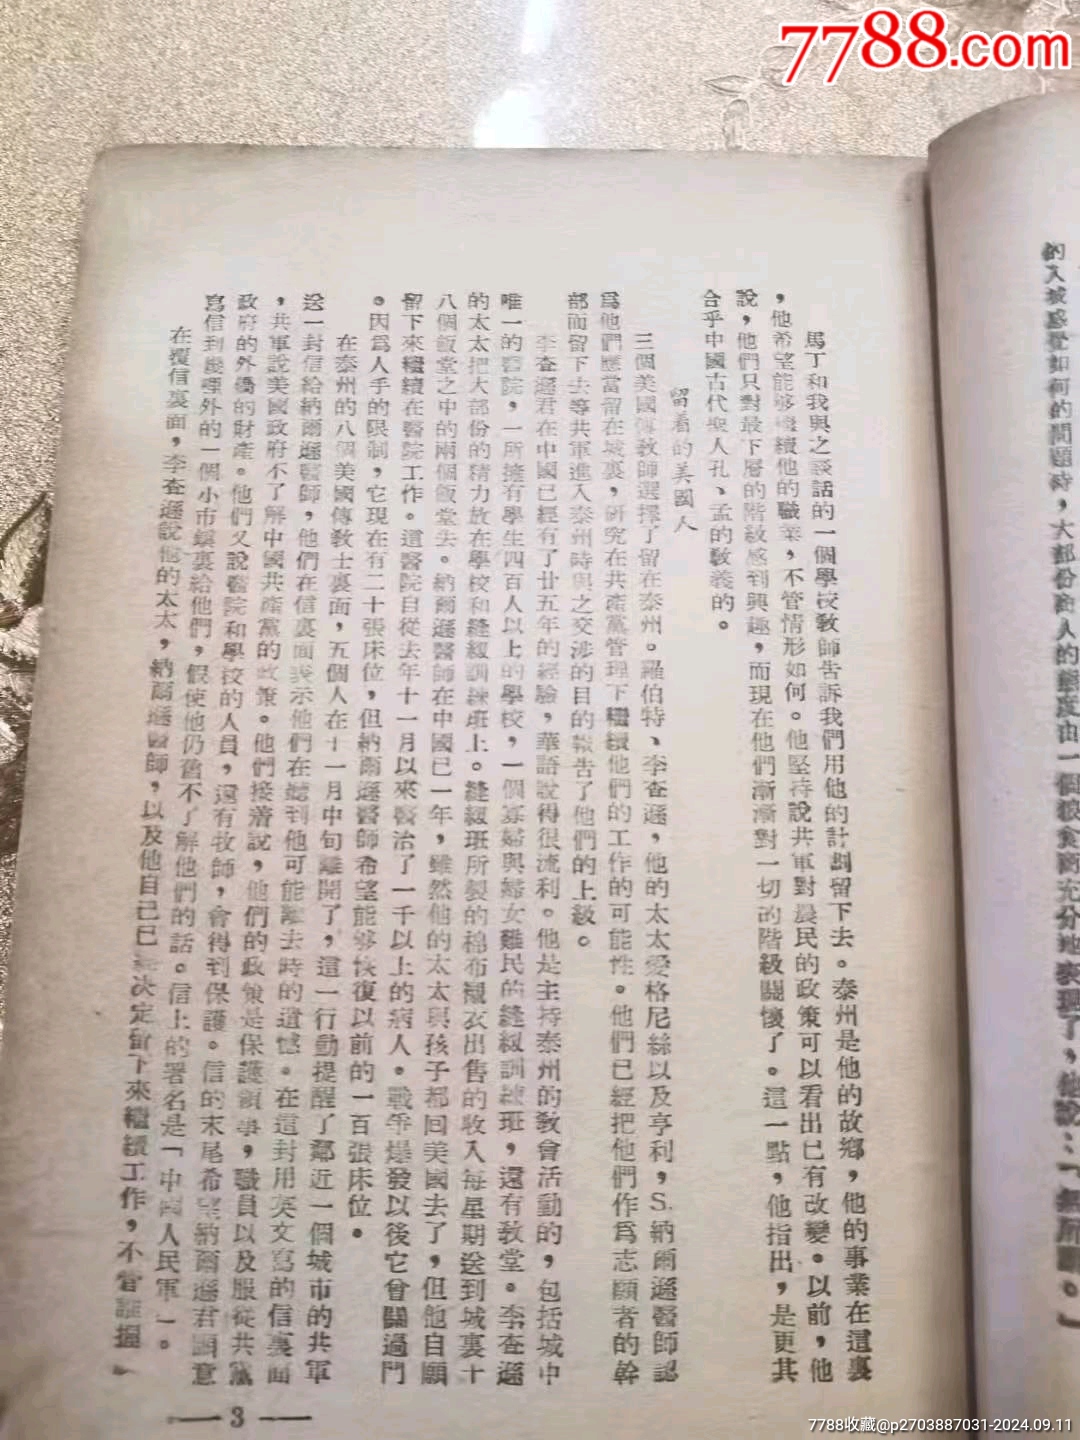 7788.com
的入城感覺如何的問題時，大部份商人的態度由一個粮食商充分地表現了，他說：「無所謂。」
馬丁和我與之談話的一個學校敎師告訴我們用他的計劃留下去。泰州是他的故鄉，他的事業在這裏
，他希望能够繼續他的職業，不管情形如何。他堅持說共軍對農民的政策可以看出已有改變。以前，他
說，他們只對最下層的階級感到興趣，而現在他們漸漸對一切的階級關懷了。這一點，他指出，是更其
合乎中國古代聖人孔、孟的敎義的。
留着的美國人
三個美國傳敎師選擇了留在泰州。羅伯特、李查遜，他的太太愛格尼絲以及亨利，S.納爾遜醫師認
爲他們應當留在城裏，研究在共產黨管理下繼續他們的工作的可能性。他們已經把他們作爲志願者的幹
部而留下去等共軍進入泰州時與之交涉的目的報告了他們的上級。
李查遜君在中國已經有了廿五年的經驗，華語說得很流利。他是主持泰州的敎會活動的，包括城中
唯一的醫院，一所擁有學生四百人以上的學校，一個寡婦與婦女難民的縫級訓練班，還有敎堂。李查遜
的太太把大部份的精力放在學校和縫級訓練班上。縫級班所製的棉布襯衣出售的收入每星期送到城裏十
八個飯堂之中的兩個飯堂去。納爾遜醫師在中國已一年，雖然他的太太與孩子都回美國去了，但他自願
留下來繼續在醫院工作。這醫院自從去年十一月以來醫治了一千以上的病人。戰爭爆發以後它曾關過門
。因爲人手的限制，它現在有二十張床位，但納爾遜醫師希望能够恢復以前的一百張床位。
在泰州的八個美國傳敎士裏面，五個人在十一月中旬離開了，這一行動提醒了鄰近一個城市的共軍
送一封信給納爾遜醫師，他們在信裏面表示他們在聽到他可能離去時的遺憾。在這封用英文寫的信裏面
，共軍說美國政府不了解中國共產黨的政策。他們接着說，他們的政策是保護領事，職員以及服從共黨
政府的外僑的財產。他們又說醫院和學校的人員，還有牧師，會得到保護。信的末尾希望納爾遜君願意
寫信到幾哩外的一個小市鎮裏給他們，假使他仍舊不了解他們的話。信上的署名是「中國人民軍」。
在覆信裏面，李查遜說他的太太，納爾遜醫師，以及他自己已經決定留下來繼續工作，不管誰
— 3 —
7788收藏@p2703887031-2024.09.11